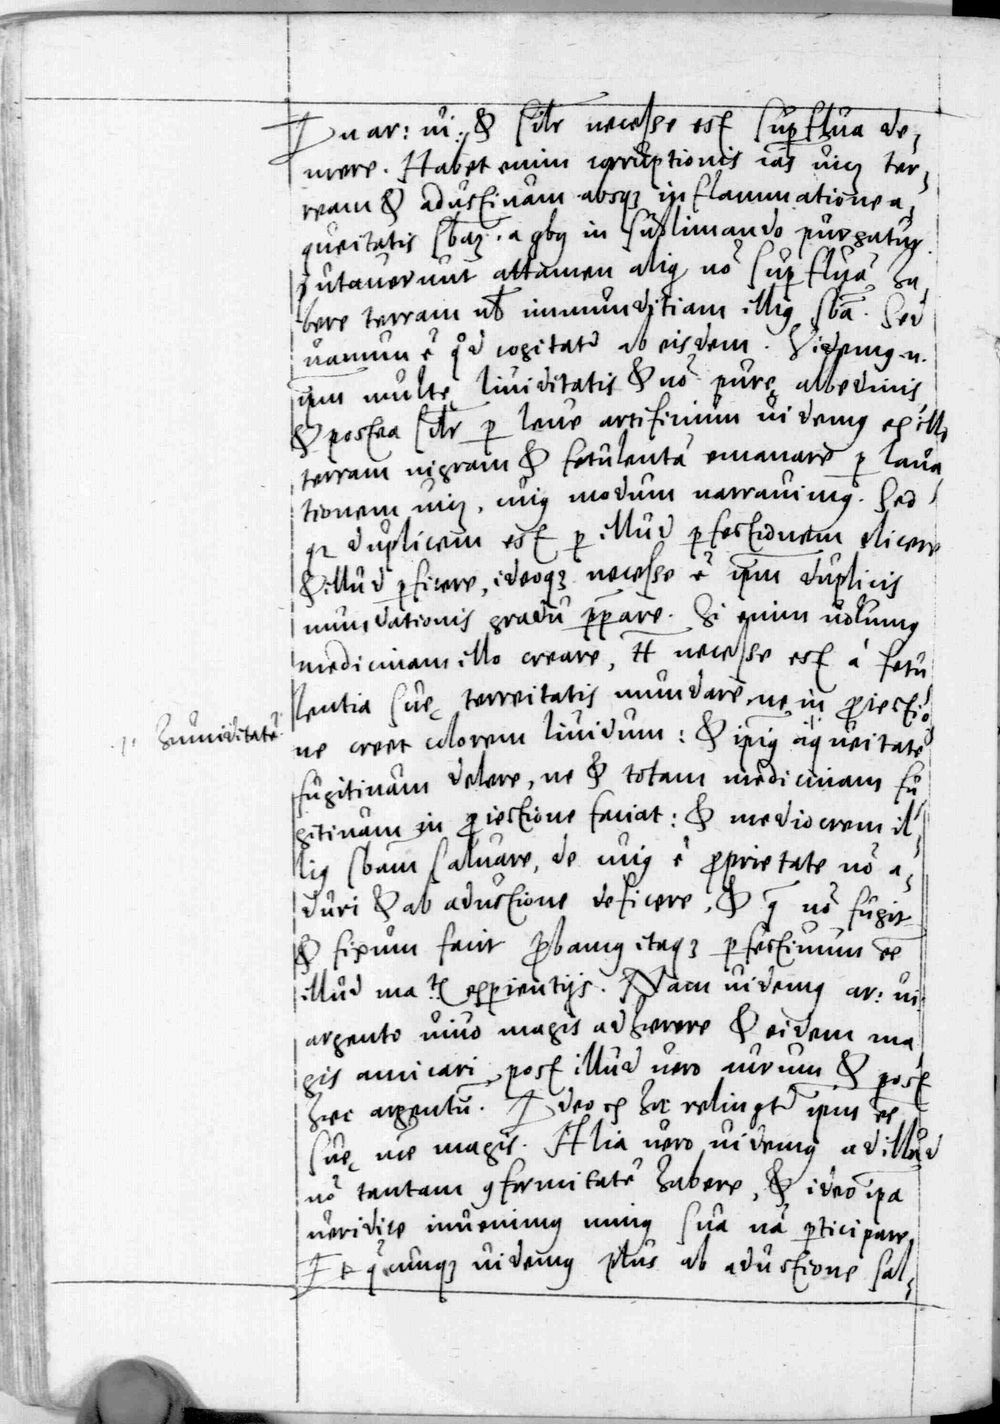 In ar: ui: & sīlr necesse est supflua de,
mere. Habet enim corruptionis cās uicꝫ ter,
ream & adustiuam absqꝫ inflammatione a,
queitatis sb̄aꝫ. a qbꝯ in sublimando purgatur.
putauerunt attamen aliqͥ nō supfluā ha,
bere terram ul̄ immunditiam illiꝯ sb̄ā. Sed
uanum ē qd̄ cogitatꝛ ab eisdem. Videmꝯ .n.
ipm multę liuiditatis & nō purę albedinis
& postea sīlr p leue artificium uidemꝯ ex illo
terram nigram & fetulentā emanare p laua,
tionem uicꝫ, cuiꝯ modum narrauimꝯ. Sed
qꝛ duplicem est p illud pfectionem elicere
& illud pficere, ideoqꝫ necesse ē ipm duplicis
mundationis gradu ppare. Si enim uolumꝯ
medicinam illo creare, tc̄ necesse est á fetu
lentia suę terreitatis mundare, ne in proiectio,
ne creet colorem liuidum: & ipiꝯ aqueitatē
.1. humiditatē
fugitiuam delere, ne & totam medicinam fu
gitiuam in proiectione faciat: & mediocrem il,
liꝯ sbam saluare, de cuiꝯ ē proprietate nō a,
duri & ab adustione deficere, & q̄ nō fugit
& fixum facit probamꝯ itaqꝫ pfectiuum eē
illud expientijs. Nam uidemꝯ ar: ui:
argento uiuo magis adherere & eidem ma
gis amicari, post illud uero aurum & post
hec argentū. Ideo ex hoc relinqtꝛ ipm eē
suę nꝛe magis. Alia uero uidemꝯ ad illud
nō tantam ꝯformitatē habere, & ideo ipa
ueridice inuenimꝯ minꝯ sua nā pticipare,
Et quęcunqꝫ uidemꝯ plus ab adustione sal,